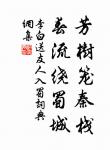 芳樹笼秦栈
春流绕蜀城
李白送友人入蜀詞典
網集